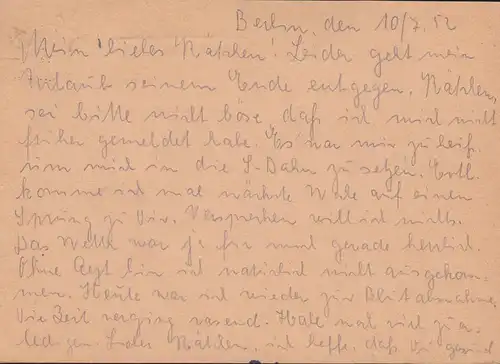 Berlin, den 10/7. 52
Mein liebes Kätchen! Leider geht mein
Urlaub seinem Ende entgegen. Kätchen,
sei bitte nicht böse, daß ich mich nicht
früher gemeldet habe. Es war mir zu heiß,
um mich in die S-Bahn zu setzen. Evtl.
komme ich mal nächste Woche auf einen
Sprung zu Dir. Versprechen will ich nichts.
Das Wetter war ja für mich gerade herrlich.
Ohne Arzt bin ich natürlich nicht ausgekom-
men. Heute war ich wieder zur Blutabnahme.
Die Zeit verging rasend. Habe noch viel zu er-
ledigen. Liebes Kätchen, ich hoffe, daß Du gesund